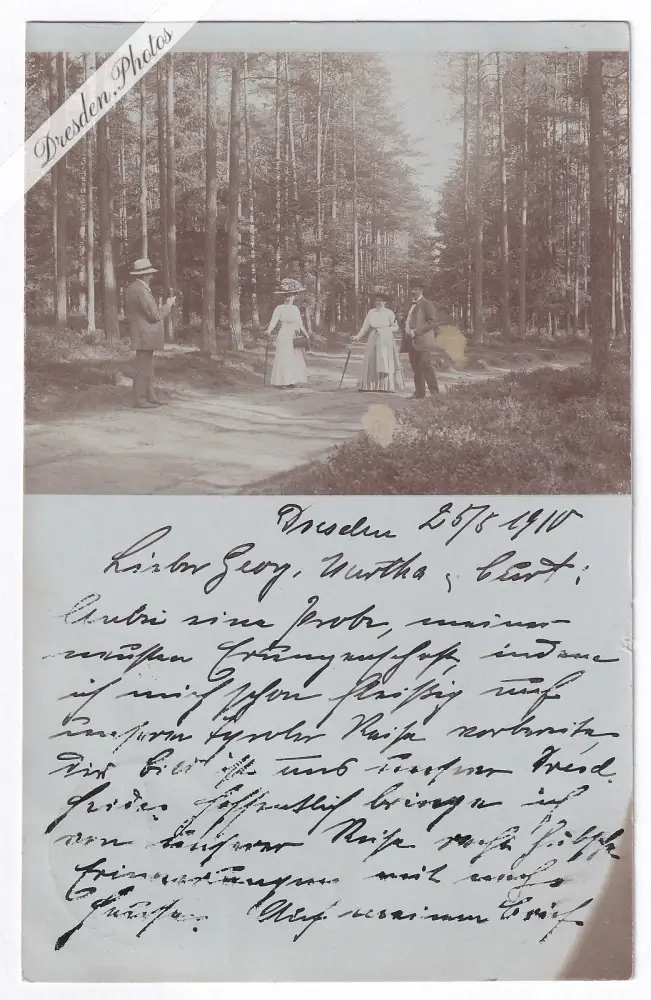 Dresden.Photos
Dresden 25/5 1910
Lieber Georg, Martha & Curt:
Anbei eine Probe, meiner
neusten Errungenschaft, indem
ich mich schon fleißig auf
unsere Tyroler Reise vorbereite,
Bild ist aus unserer Dresd.
Heide. Hoffentlich bringe ich
von unserer Reise recht hübsche
Erinnerungen mit nach
Hause. Auf meinen Brief